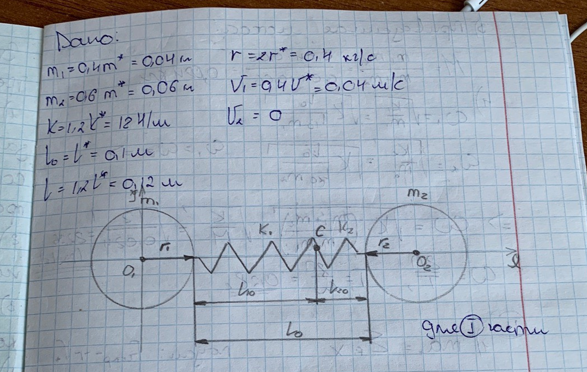 Дано:
m₁=0,4m*=0,04 кг
m₂=0,6m*=0,06 кг
K=1,2K*=12 Н/м
l₀=l*=0,1 м
l=1,2l*=0,12 м
r=2r*=0,4 кг/с
V₁=0,4V*=0,04 м/с
V₂=0
m₁
m₂
r₁
K₁
C
K₂
r₂
O₁
O₂
L₁₀
L₂₀
L₀
для I части